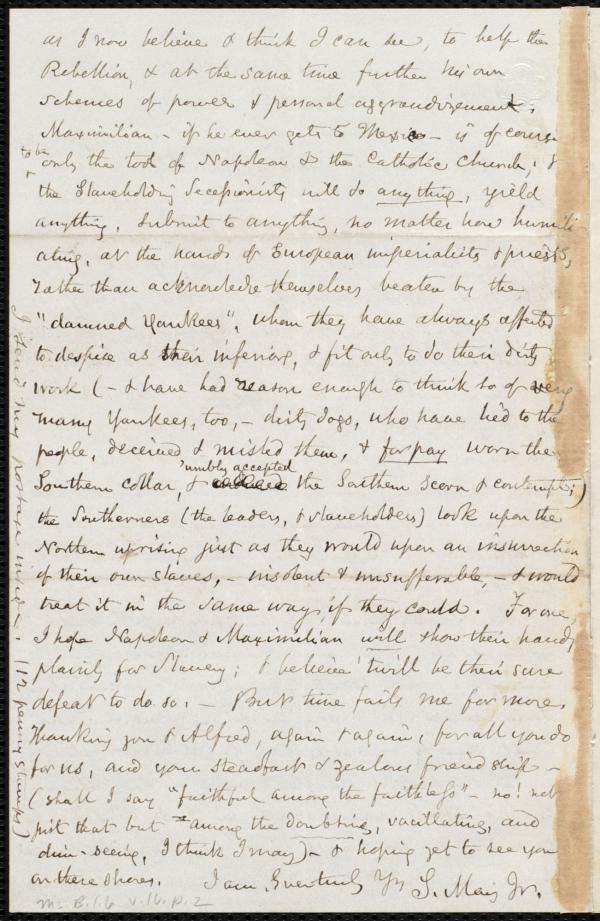 as I now believe & think I can see, to help the
Rebellion, & at the same time further his own
schemes of power & personal aggrandizement.
Maximilian - if he ever gets to Mexico - is of course
to be
only the tool of Napoleon & the Catholic Church; &
the Slaveholding Secessionists will do anything, yield
anything, submit to anything, no matter how humili-
ating, at the hands of European imperialists & priests,
rather than acknowledge themselves beaten by the
"damned Yankees", whom they have always affected
to despise as their inferiors, & fit only to do their dirty
work (- & have had reason enough to think so of very
many Yankees, too, - dirty dogs, who have lied to the
people, deceived & misled them, & for pay worn the
humbly accepted
Southern collar, & the Southern scorn & contempt;)
the Southerners (the leaders, & slaveholders) look upon the
Northern uprising just as they would upon an insurrection
of their own slaves, - insolent & unsufferable, - & would
treat it in the same way, if they could. For one,
I hope Napoleon & Maximilian will show their hands
plainly for Slavery; & believe 'twill be their sure
defeat to do so. - But time fails me for more.
Thanking you & Alfred, again & again, for all you do
for us, and your steadfast & zealous friendship -
(shall I say "faithful among the faithless" - no! not
just that but "among the doubting, vacillating, and
dim-seeing, I think I may) - & hoping yet to see you
on these shores. I am, Evermore Yrs S. May Jr.
I send my postage in (12 penny stamps)
Ms. B.1.6 v.16. p.2